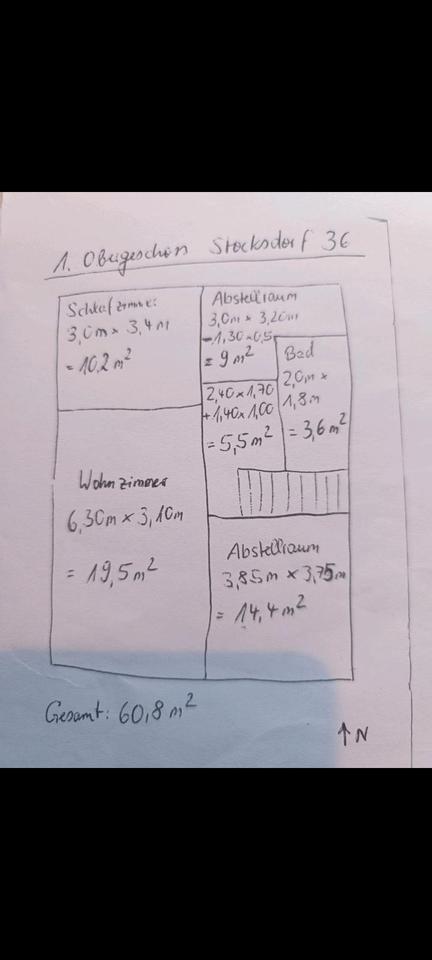 1. Obergeschoss Stocksdorf 36
Schlafzimmer
3,0m × 3,4m
= 10,2 m²
Abstellraum
3,0m × 3,20m
- 1,30 × 0,5
= 9 m²
Bad
2,0m ×
1,8m
= 3,6 m²
2,40 × 1,70
+ 1,40 × 1,00
= 5,5 m²
Wohnzimmer
6,30m × 3,10m
= 19,5 m²
Abstellraum
3,85m × 3,75m
= 14,4 m²
Gesamt: 60,8 m²
↑ N